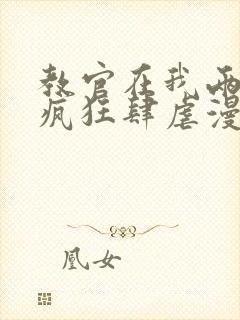 教官在我两
疯狂肆虐漫
凰女